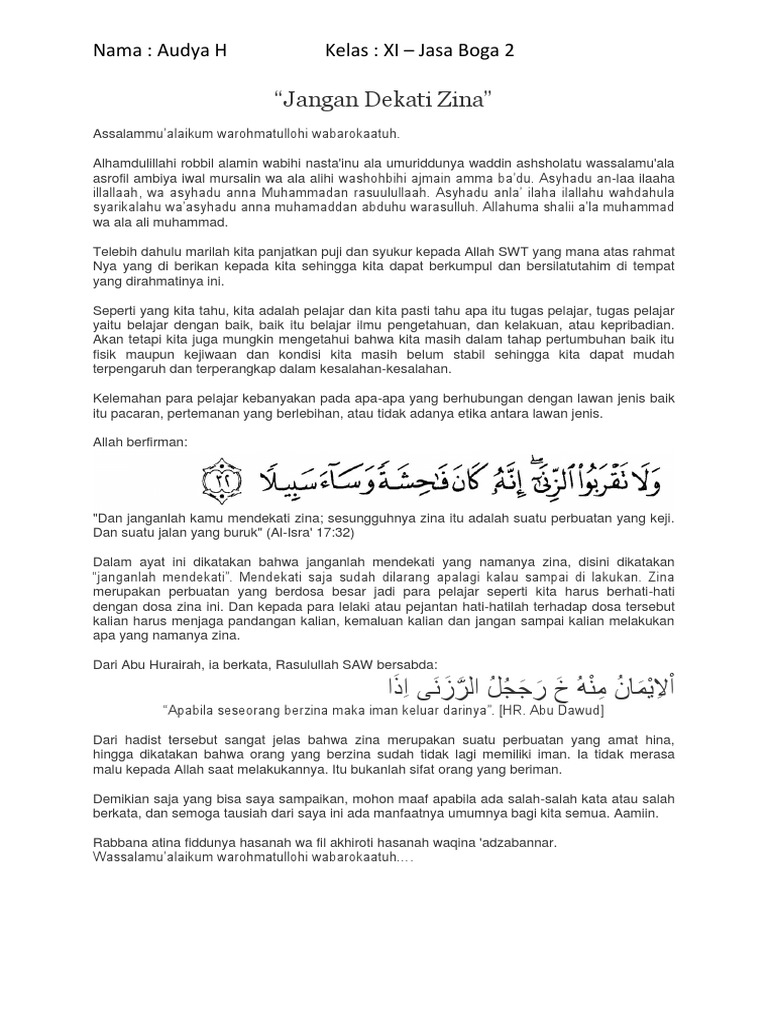 Nama : Audya H Kelas : XI – Jasa Boga 2
“Jangan Dekati Zina”
Assalammu’alaikum warohmatullohi wabarokaatuh.
Alhamdulillahi robbil alamin wabihi nasta'inu ala umuriddunya waddin ashsholatu wassalamu'ala
asrofil ambiya iwal mursalin wa ala alihi washohbihi ajmain amma ba’du. Asyhadu an-laa ilaaha
illallaah, wa asyhadu anna Muhammadan rasuulullaah. Asyhadu anla’ ilaha ilallahu wahdahula
syarikalahu wa’asyhadu anna muhamaddan abduhu warasulluh. Allahuma shalii a’la muhammad
wa ala ali muhammad.
Telebih dahulu marilah kita panjatkan puji dan syukur kepada Allah SWT yang mana atas rahmat
Nya yang di berikan kepada kita sehingga kita dapat berkumpul dan bersilatutahim di tempat
yang dirahmatinya ini.
Seperti yang kita tahu, kita adalah pelajar dan kita pasti tahu apa itu tugas pelajar, tugas pelajar
yaitu belajar dengan baik, baik itu belajar ilmu pengetahuan, dan kelakuan, atau kepribadian.
Akan tetapi kita juga mungkin mengetahui bahwa kita masih dalam tahap pertumbuhan baik itu
fisik maupun kejiwaan dan kondisi kita masih belum stabil sehingga kita dapat mudah
terpengaruh dan terperangkap dalam kesalahan-kesalahan.
Kelemahan para pelajar kebanyakan pada apa-apa yang berhubungan dengan lawan jenis baik
itu pacaran, pertemanan yang berlebihan, atau tidak adanya etika antara lawan jenis.
Allah berfirman:
وَلَا تَقْرَبُوا۟ ٱلزِّنَىٰٓ ۖ إِنَّهُۥ كَانَ فَٰحِشَةً وَسَآءَ سَبِيلًا ٣٢
"Dan janganlah kamu mendekati zina; sesungguhnya zina itu adalah suatu perbuatan yang keji.
Dan suatu jalan yang buruk" (Al-Isra' 17:32)
Dalam ayat ini dikatakan bahwa janganlah mendekati yang namanya zina, disini dikatakan
“janganlah mendekati”. Mendekati saja sudah dilarang apalagi kalau sampai di lakukan. Zina
merupakan perbuatan yang berdosa besar jadi para pelajar seperti kita harus berhati-hati
dengan dosa zina ini. Dan kepada para lelaki atau pejantan hati-hatilah terhadap dosa tersebut
kalian harus menjaga pandangan kalian, kemaluan kalian dan jangan sampai kalian melakukan
apa yang namanya zina.
Dari Abu Hurairah, ia berkata, Rasulullah SAW bersabda:
اْلاِيْمَانُ مِنْهُ خَ رَجَجُلُ الرَّزَنَى اِذَا
“Apabila seseorang berzina maka iman keluar darinya”. [HR. Abu Dawud]
Dari hadist tersebut sangat jelas bahwa zina merupakan suatu perbuatan yang amat hina,
hingga dikatakan bahwa orang yang berzina sudah tidak lagi memiliki iman. Ia tidak merasa
malu kepada Allah saat melakukannya. Itu bukanlah sifat orang yang beriman.
Demikian saja yang bisa saya sampaikan, mohon maaf apabila ada salah-salah kata atau salah
berkata, dan semoga tausiah dari saya ini ada manfaatnya umumnya bagi kita semua. Aamiin.
Rabbana atina fiddunya hasanah wa fil akhiroti hasanah waqina 'adzabannar.
Wassalamu’alaikum warohmatullohi wabarokaatuh….